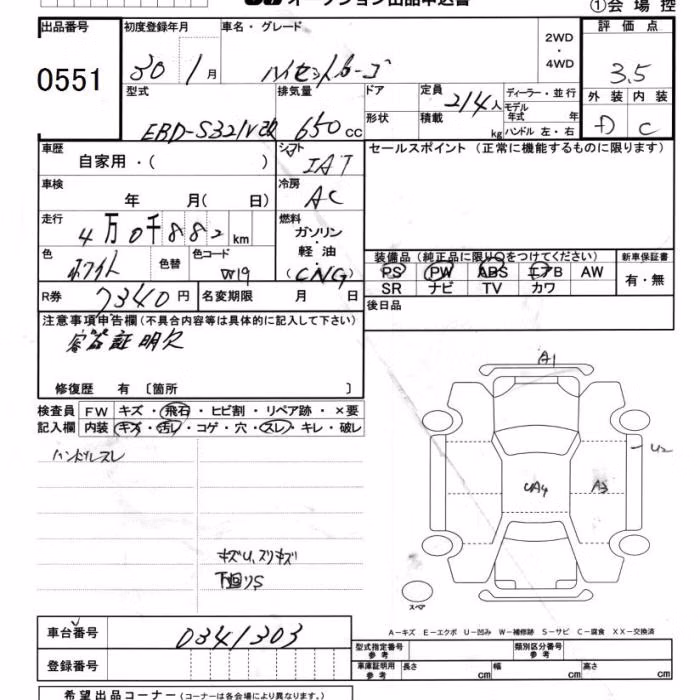 オークション出品申込書
①会場控
出品番号 0551
初度登録年月 30 1月
車名・グレード ハイゼットカーゴ
2WD・4WD
評価点 3.5
外装 D 内装 C
型式 EBD-S321V改
排気量 650cc
ドア
形状
定員 2/4人
積載 kg
ディーラー・並行
モデル年式 年
ハンドル 左・右
車歴 自家用・( )
シフト IAT
セールスポイント (正常に機能するものに限ります)
車検 年 月( 日)
冷房 AC
走行 4万0千882km
燃料 ガソリン・軽油・(CNG)
色 ホワイト 色替 色コード W19
装備品 (純正品に限り○をつけてください)
PS PW ABS エアB AW
SR ナビ TV カワ
新車保証書
有・無
R券 7340円
名変期限 月 日
後日品
注意事項申告欄 (不具合内容等は具体的に記入して下さい)
容器証明欠
修復歴 有 〔箇所 〕
検査員記入欄
FW キズ・飛石・ヒビ割・リペア跡・×要
内装 キズ・汚レ・コゲ・穴・スレ・キレ・破レ
ハンドルスレ
キズU、スリキズ
下回りS
A1
U2
UA4
A3
スペア
A-キズ E-エクボ U-凹み W-補修跡 S-サビ C-腐食 XX-交換済
車台番号 0341303
登録番号
型式指定番号 参考
類別区分番号 参考
車庫証明用 参考 長さ cm 幅 cm 高さ cm
希望出品コーナー (コーナーは各会場により異なります。)